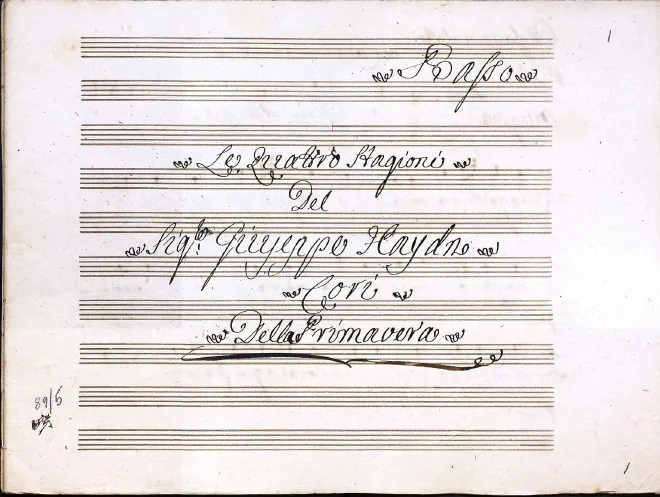 1
Basso
Le Quattro Stagioni
Del
Sigr. Giuseppe Haydn
Cori
Della Primavera
89/6
1